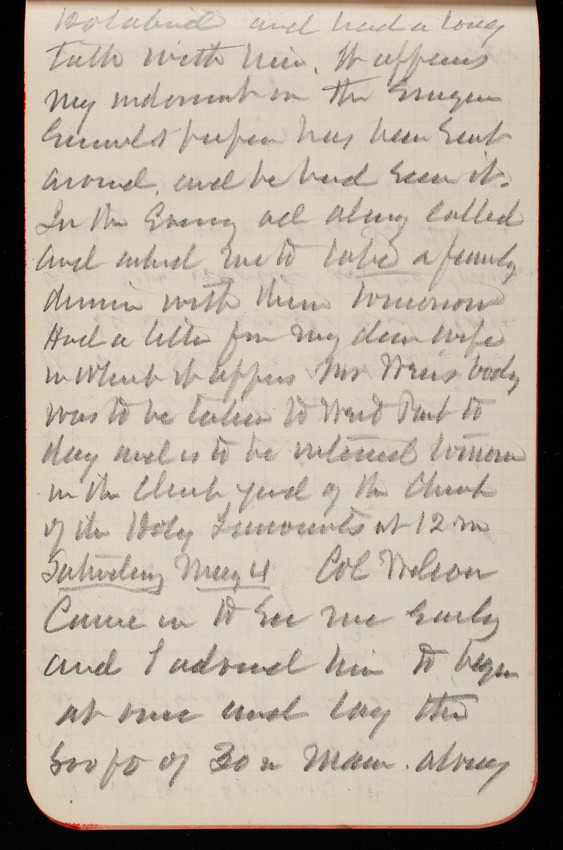 and had a long
talk with him. It appears
my indorsement on the
paper has been sent
around, and he had seen it.
In the Evening called
and asked me to take a family
dinner with them tomorrow
Had a letter from my dear wife
in which it appears Mrs body
was to be taken to West Point to
day and is to be interred tomorrow
in the Church yard of the Church
of the Holy Innocents at 12 m
Saturday May 4 Col Wilson
Came in to see me early
and I advised him to begin
at once and lay the
500 ft of 30 in Main. along